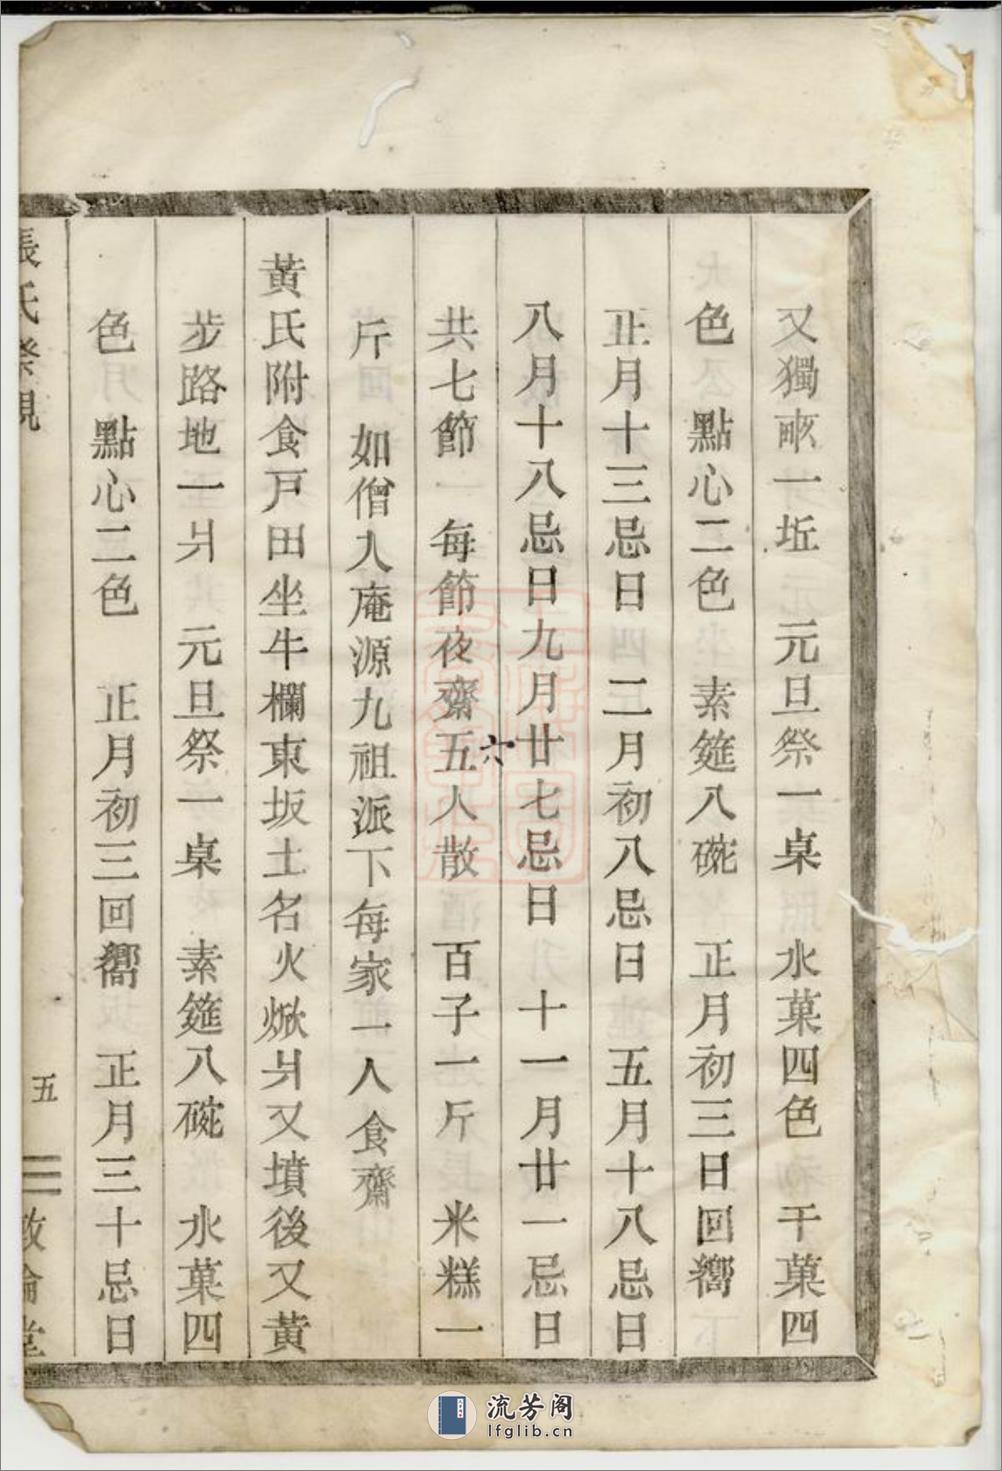 又獨畝一坵 元旦祭一桌 水菓四色 干菓四
色 點心二色 素筵八碗 正月初三日回嚮
正月十三忌日 二月初八忌日 五月十八忌日
八月十八忌日九月廿七忌日 十一月廿一忌日
六
共七節 每節夜齋五人散 百子一斤 米糕一
斤 如僧入庵源九祖派下每家一人食齋
黃氏附食戸田坐牛欄東坂土名火焮爿又墳後又黃
步路地一爿 元旦祭一桌 素筵八碗 水菓四
色 點心二色 正月初三回嚮 正月三十忌日
張氏祭規 五 敦倫堂
流芳阁
lfglib.cn